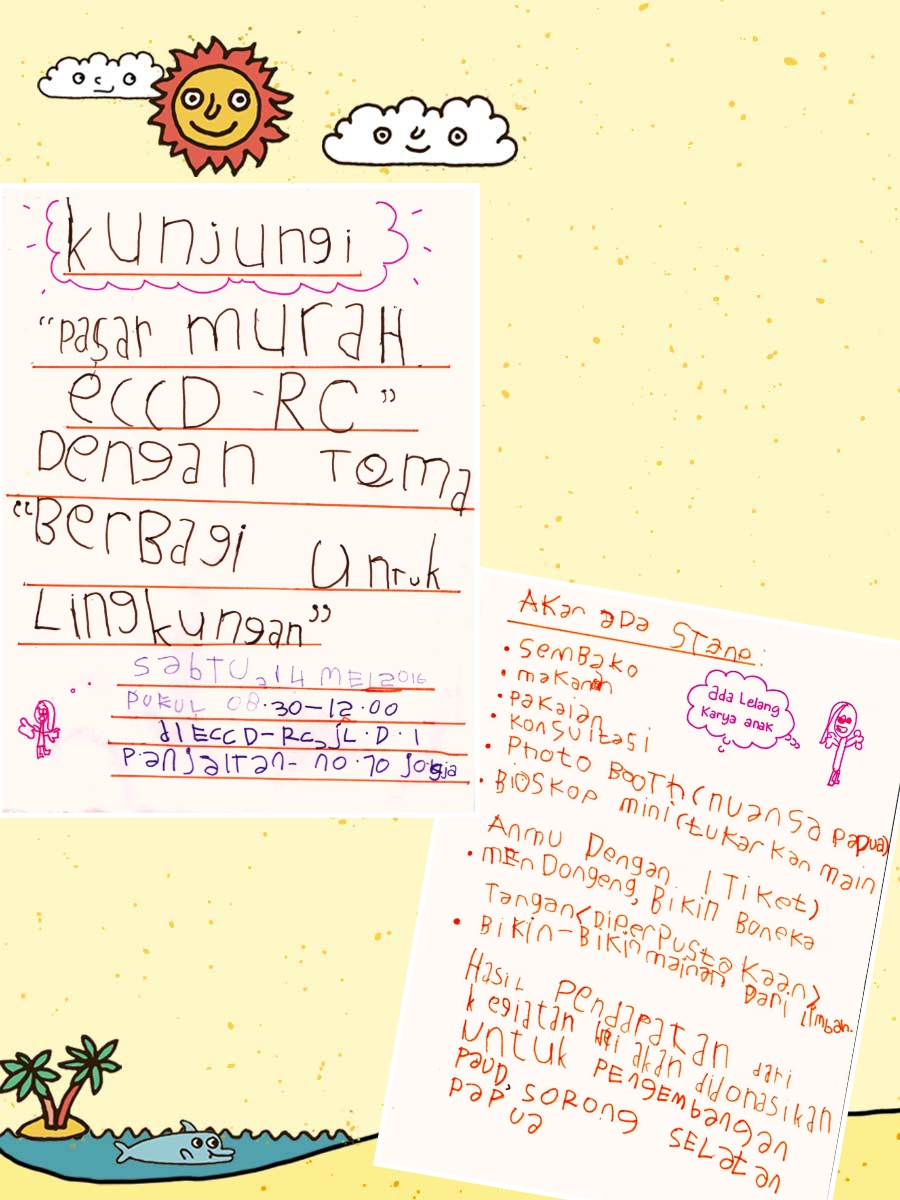 kunjungi
"pasar muraH
eCCD-RC"
Dengan Tema
"BerBagi untuk
Lingkungan"
SabTU, 14 MEI 2016
PUKUL 08.30-12.00
dI ECCD-RC, JL.D.I
P.anjaitan- no.70 Jogja
AKan aDa STane:
• SemBako
• makanan
• pakaian
• KonSultasi
• PhoTo BooTH (nuanSa papua)
• BiOSKop mini (tukar Kan main
Anmu Dengan 1 TiKet)
• mEnDongeng, BiKin Boneka
Tangan (DiperPustaKaan)
• BiKin-BiKin mainan Dari limban.
ada Lelang
Karya anak
HasiL PenDapatan dari
kegiatan ini akan didonasikan
Untuk PEngEmbangan
PAUD, SORong SELatan
pap
ua